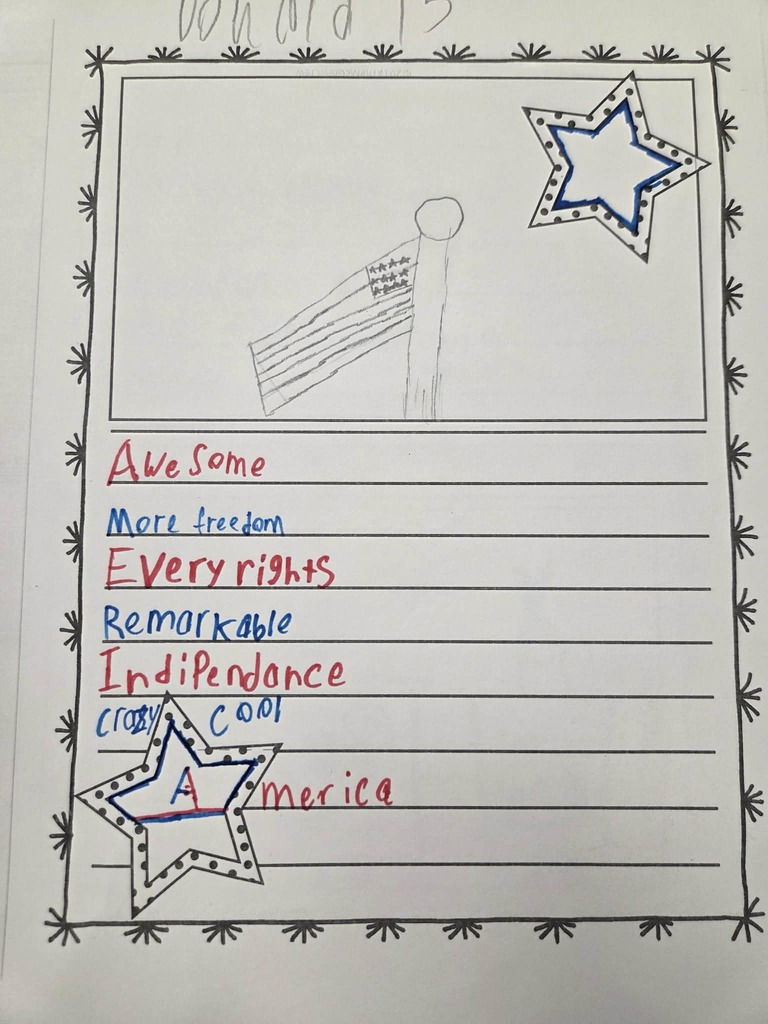 Donald 15
Awesome
More freedom
Every rights
Remarkable
Indipendance
crazy cool
America